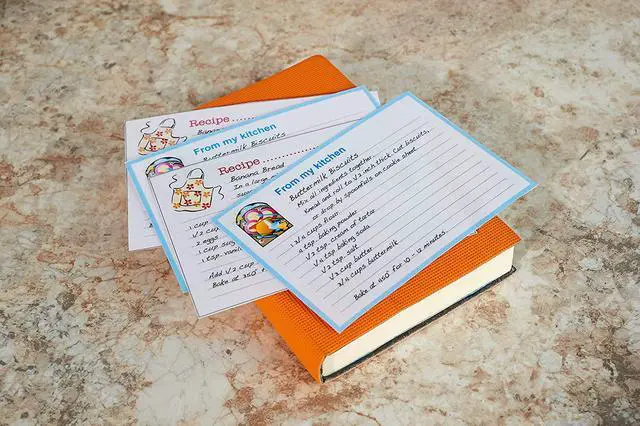 Recipe
Banana
From my kitchen
Buttermilk Biscuits
Recipe
Banana Bread
In a large
1 cup
1/2 cup
2 eggs
1 cup
1 tsp.
Add 1/2 cup
Bake at 350°
From my kitchen
Buttermilk Biscuits
Mix all ingredients together.
Knead and roll to 1/2 inch thick. Cut biscuits,
or drop by spoonfuls on cookie sheet.
1 3/4 cups flour
4 tsp. baking powder
1/2 tsp. cream of tartar
1/4 tsp. baking soda
1/2 tsp. salt
1/3 cup butter
3/4 cups buttermilk
Bake at 450° for 10 - 12 minutes.